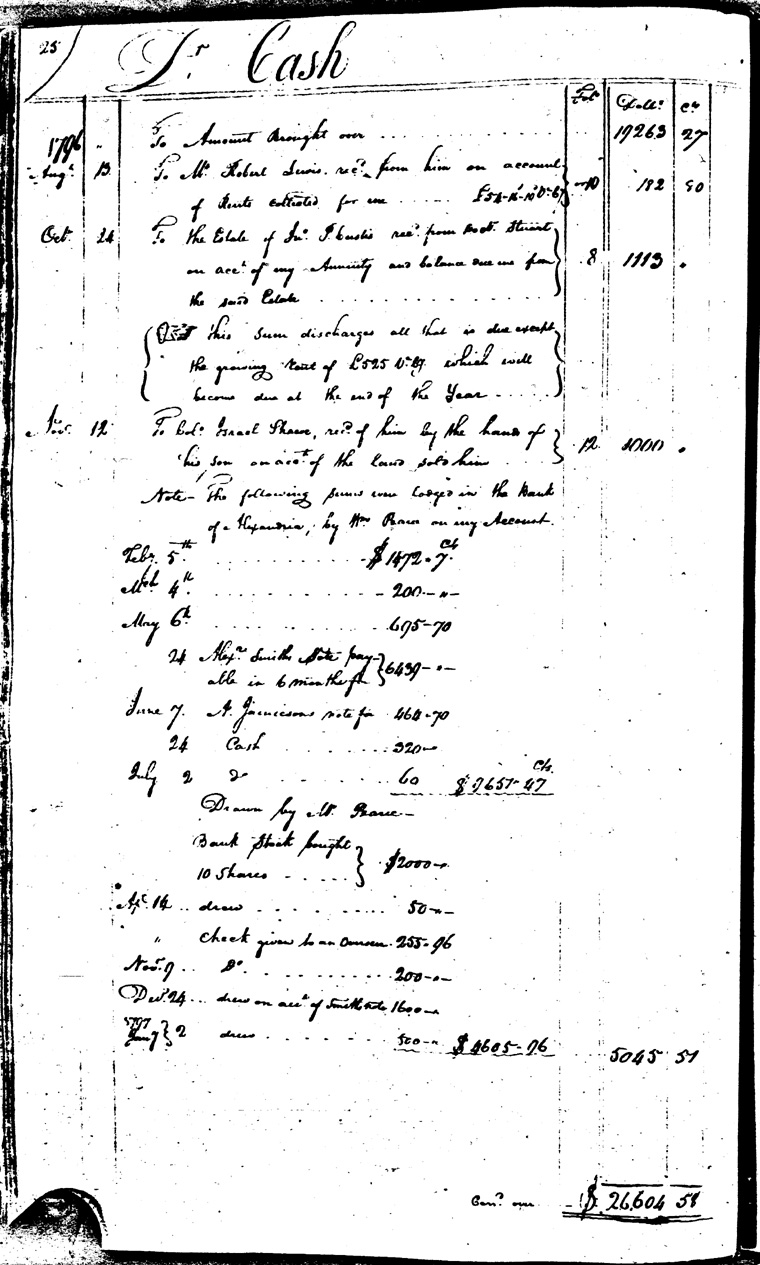 25
Dr Cash
Folo Dolls Cts
1796 " To Amount Brought over . . . . 19263 27
Augt 13 To Mr Robert Lewis recd from him on account
of Rents collected for me . . . . £54-16-10 Va 10 182 80
Oct. 24 To the Estate of Jno P. Custis recd from Doctr Stuart
on acct of my Annuity and balance due me from 8 1113 "
the said Estate . . . .
this sum discharges all that is due except
the growing rent of £525 which will
become due at the end of the Year - . . . .
Nov. 12 To Colo Israel Shreve, recd of him by the hands of
his son on acct of the land sold him . . . 12 1000 "
Note- The following sums were lodged in the Bank
of Alexandria, by Wm Pearce on my Account.
Feby 5th . . . . $1472-7 Cts
Mch 4th . . . . 200-"-
May 6th . . . . 695-70
24 Alexr Smiths Note pay-
able in 6 months for 6439-"-
June 7. A. Jamiesons note for 464-70
24 Cash . . . . 320-"
July 2 Do . . . . 60 $9651-47 Cts
Drawn by Mr Pearce-
Bank Stock bought
10 Shares - . . . $2000-"
Apl 14 . . drew . . . . 50-"-
" Check given to an Overseer 255-96
Novr 9 . . Do . . . . 200-"-
Decr 24 . . . drew on acct of Smiths note 1600-"
1797
Jany 2 drew . . . . 500-" $4605-96 5045 51
Card over . . . $ 26,604 58